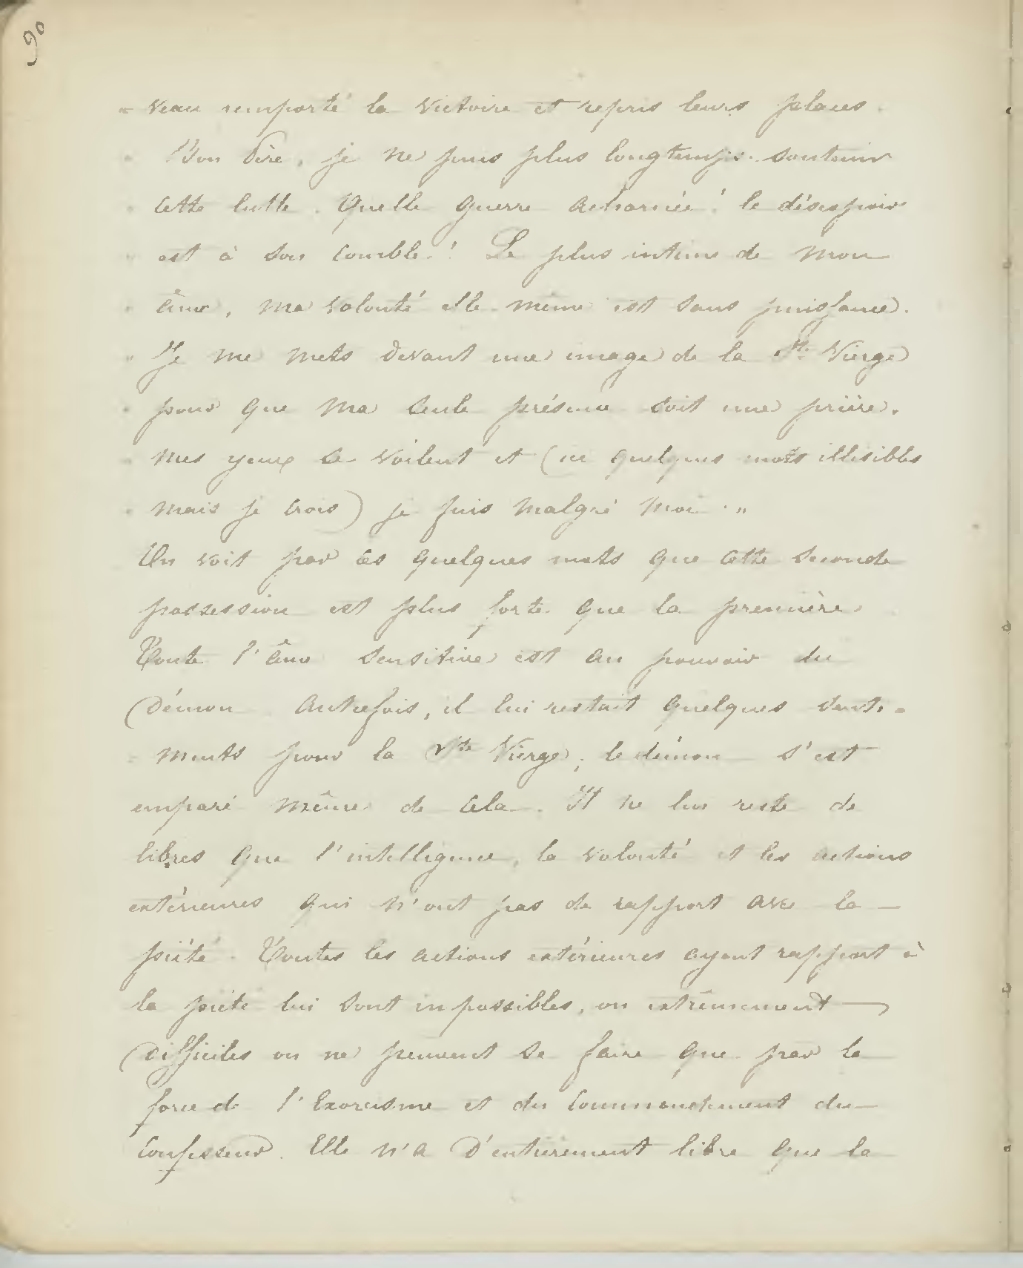 90
" veau remporté la victoire et repris leurs places.
" Bon Père, je ne puis plus longtemps soutenir
" cette lutte. Quelle guerre acharnée! le désespoir
" est à son comble! Le plus intime de mon
" âme, ma volonté elle même est sans puissance.
" Je me mets devant une image de la Ste Vierge
" pour que ma seule présence soit une prière.
" mes yeux se voilent et (ici quelques mots illisibles
" mais je crois) je fuis malgré moi. "
On voit par ces quelques mots que cette seconde
possession est plus forte que la première.
Toute l'âme sensitive est au pouvoir du
Démon. Autrefois, il lui restait quelques senti-
- ments pour la Ste Vierge; le démon s'est
emparé même de cela. Il ne lui reste de
libres que l'intelligence, la volonté et les actions
extérieures qui n'ont pas de rapport avec la
piété. Toutes les actions extérieures ayant rapport à
la piété lui sont impossibles, ou extrêmement
difficiles ou ne peuvent se faire que par la
force de l'Exorcisme et du commandement du
Confesseur. Elle n'a d'entièrement libre que la